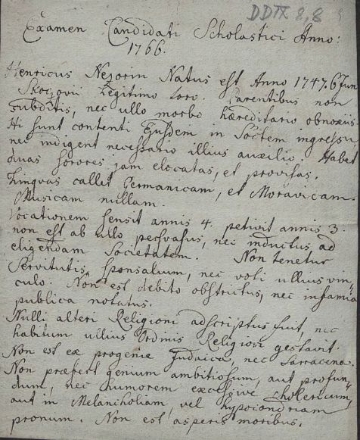 DDTX 8,8
Examen Candidati Scholastici Anno:
1766.
Henricus Natus est Anno 1747. 6 Jun
Legitimo toro. Parentibus non
subditis, nec ullo morbo hæreditario obnoxius
Hi sunt contenti Ejusdem in Soctem ingressu
nec indigent necessario illius auxilio. Habet
duas Sorores jam elocatas, et provisas.
Linguas callet Germanicam, et Moravicam.
Musicam nullam.
Vocationem sensit annis 4. petivit annis 3.
non est ab ullo persvasus, nec inductus ad
eligendam Societatem. Non tenetur
Servitutis, Sponsalium, nec voti ullius vin-
culo. Non est debito obstrictus, nec infamia
publica notatus.
Nulli alteri Religioni adscriptus fuit, nec
habitum ullius Ordinis Religiosi gestavit.
Non est ex progenie Judaica, nec Sarracena.
Non præfert genium ambitiosum, aut profun-
dum, nec humorem excessive Cholericum,
aut in Melancholiam vel hypocondriam
pronum. Non est asperis moribus.